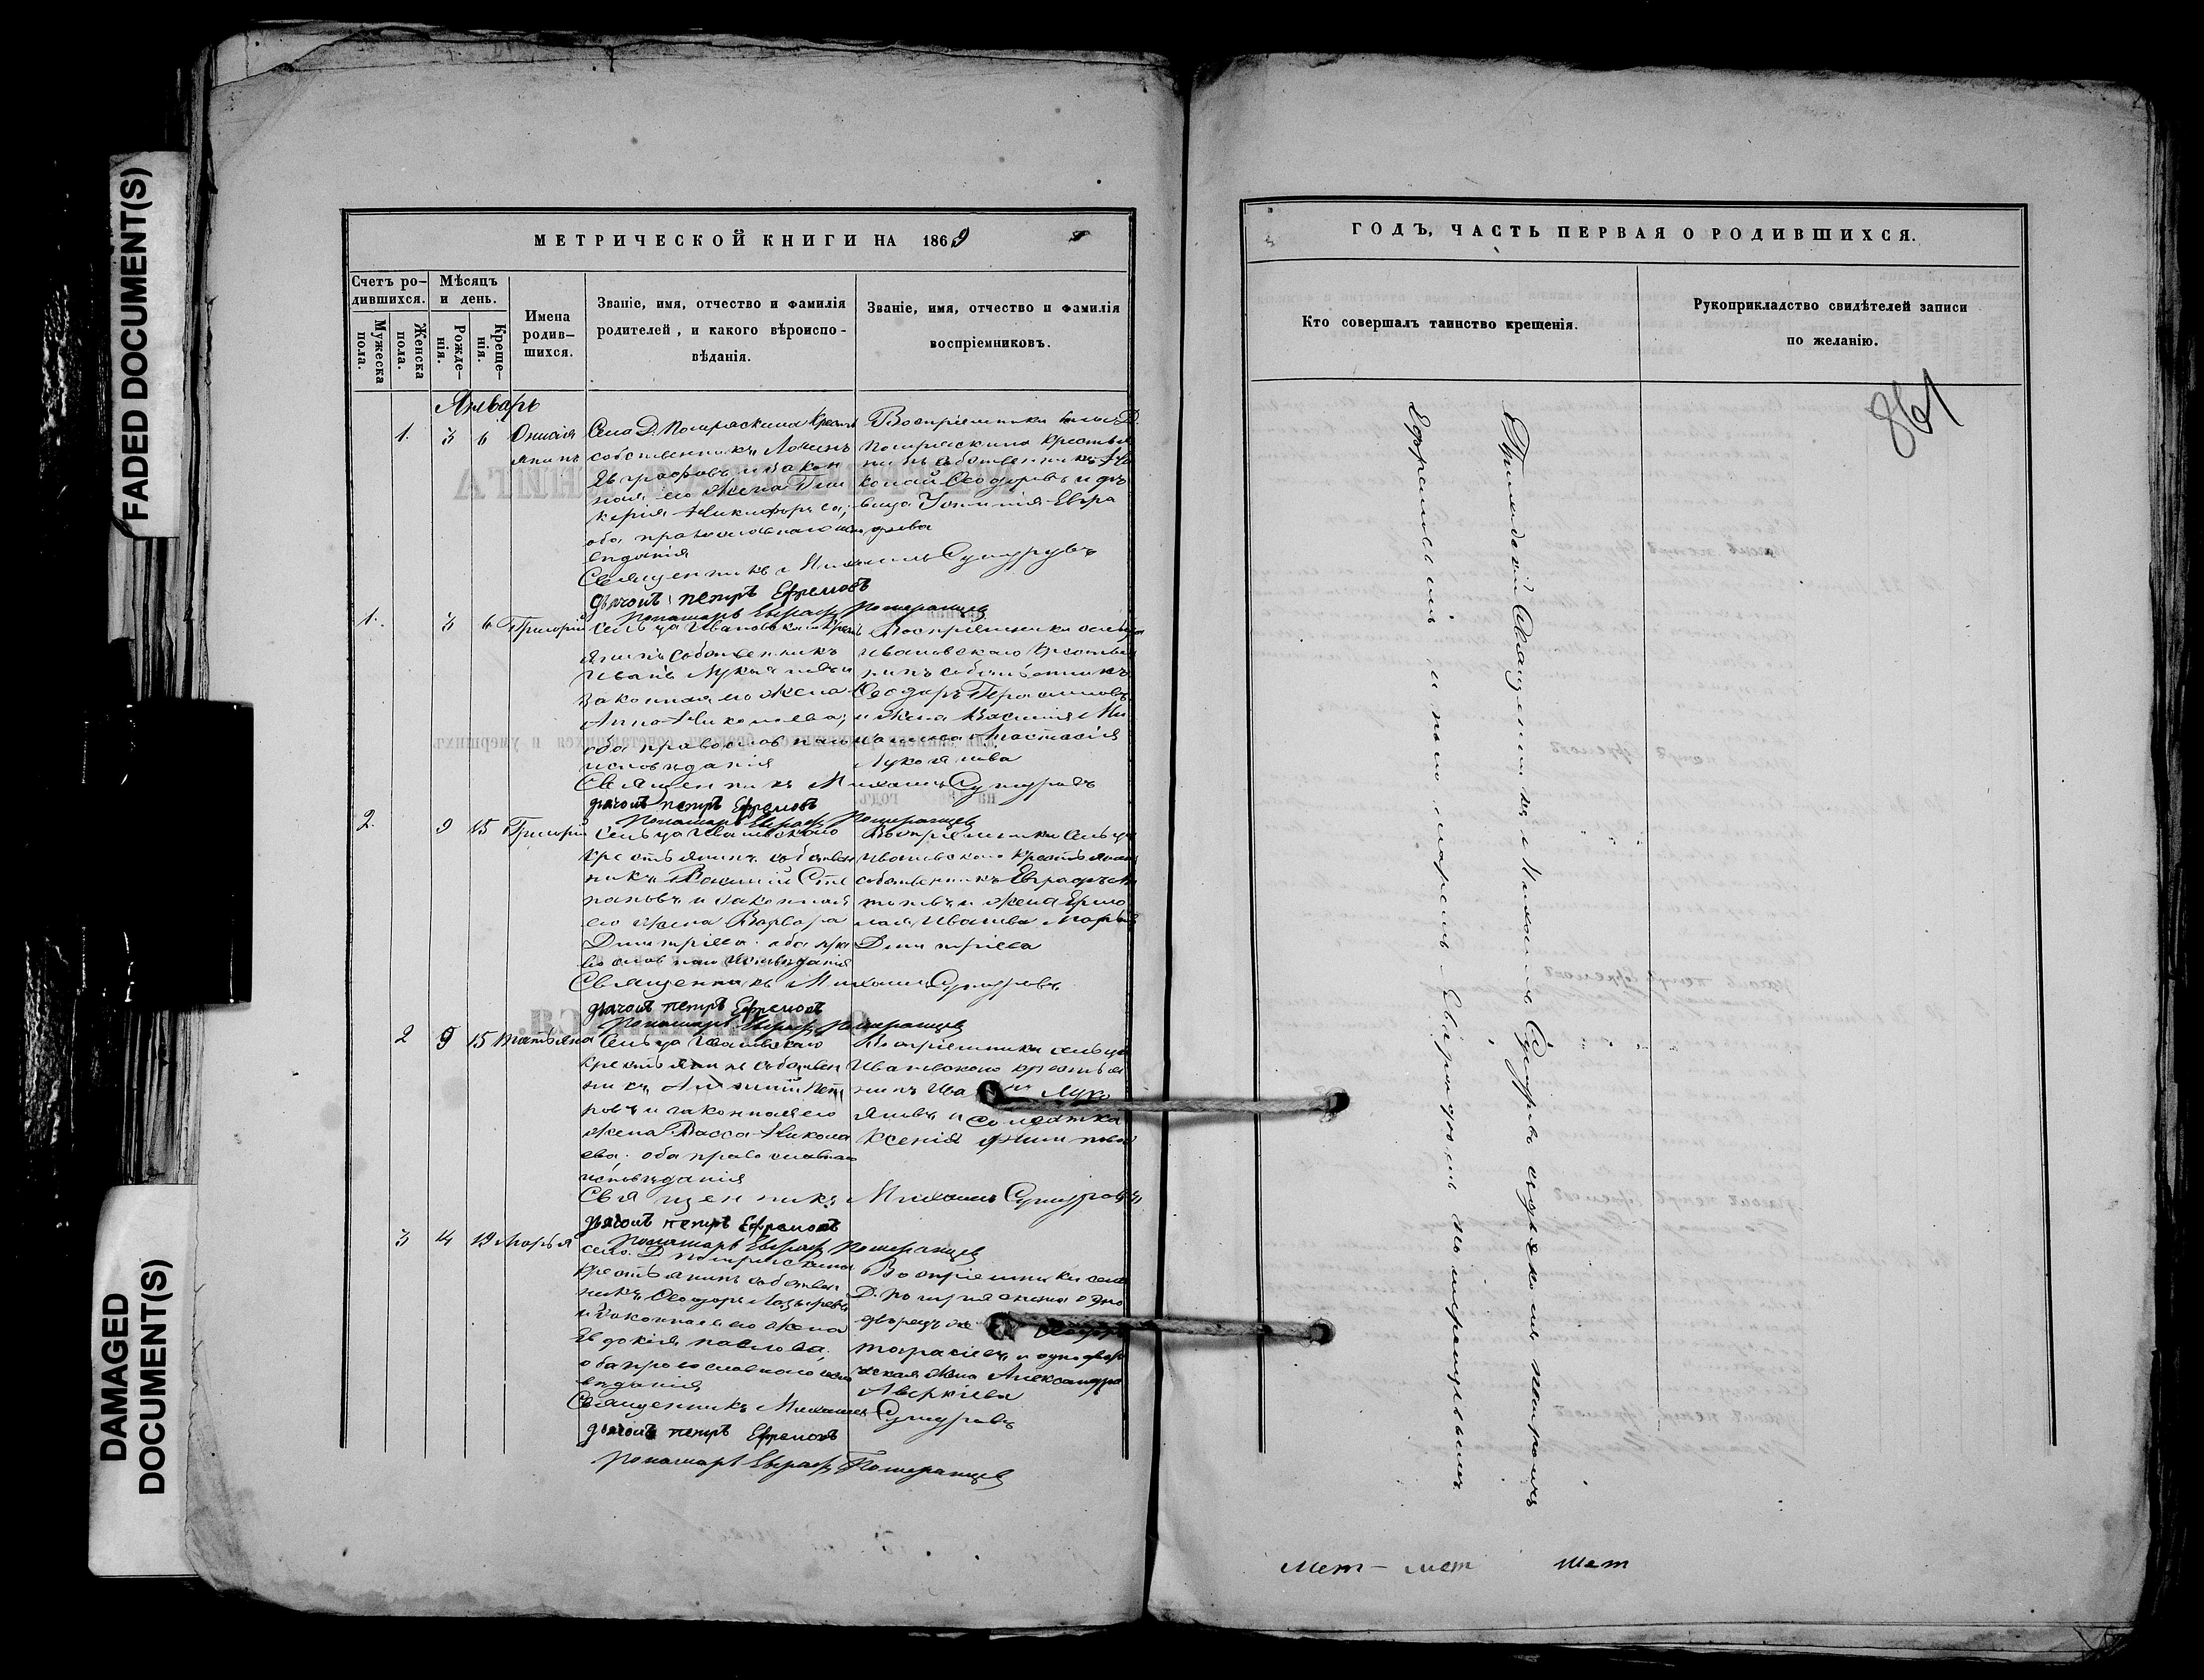 FADED DOCUMENT(S)
DAMAGED
DOCUMENT(S)
МЕТРИЧЕСКОЙ КНИГИ НА 1869
Счетъ ро-
дившихся.
Мужеска
пола.
Женска
пола.
Мѣсяцъ
и день.
Рожде-
нія.
Креще-
нія.
Имена
родив-
шихся.
Званіе, имя, отчество и фамилія
родителей, и какого вѣроиспо-
вѣданія.
Званіе, имя, отчество и фамилія
воспріемниковъ.
Январь
1. 3 6
собственникъ Логинъ
Евграфовъ и закон
ная его жена Гли
керія Никифорова,
оба православнаго испо
вѣданія
Воспріемники села Д.
крестья
нинъ собственникъ
Ѳеодоровъ и дѣ
вица Евгра
фова
Священникъ Михаилъ
Дьячокъ Петръ Ефремовъ
Пономарь Евграфъ Померанцев
1. 3 6 Григорій
сельца Ивановскаго крест
янинъ собственникъ
Иванъ Лукьяновъ и
законная его жена
Анна Николаева,
оба православнаго
исповѣданія
Воспріемники сельца
Ивановскаго крестья
нинъ собственникъ
Ѳеодоръ Герасимовъ
и жена Василія
Анастасія
Лукоянова
Священникъ Михаилъ
Дьячокъ Петръ Ефремовъ
Пономарь Евграфъ Померанцев
2. 9 15 Григорій
сельца Ивановскаго
крестьянинъ собствен
никъ Василій Сте
пановъ и законная
его жена Варвара
Димитріева. оба пра
вославнаго исповѣданія
Воспріемники сельца
Ивановскаго крестьянинъ
собственникъ Евграфъ
и жена Ермо
лая Иванова Марья
Димитріева
Священникъ Михаилъ
Дьячокъ Петръ Ефремовъ
Пономарь Евграфъ Померанцев
2 9 15 Татьяна
Сельца Ивановскаго
крестьянинъ собствен
никъ Пет
ровъ и законная его
жена Васса Никола
ева. оба православнаго
исповѣданія
Воспріемники сельца
Ивановскаго крестья
нинъ Ива нъ Луко
яновъ и солдатка
Ксенія Филипова
Священникъ Михаилъ
Дьячокъ Петръ Ефремовъ
Пономарь Евграфъ Померанцев
3 14 19 Марья
село Д.
крестьянинъ собствен
никъ Ѳеодоръ Лазаревъ
и законная его жена
Евдокія Павлова.
оба православнаго испо
вѣданія
Воспріемники села
Д. одно
дворецъ
Тарасіевъ и однодвор
ческая жена Александра
Аверкіева
Священникъ Михаилъ
Дьячокъ Петръ Ефремовъ
Пономарь Евграфъ Померанцев
ГОДЪ, ЧАСТЬ ПЕРВАЯ О РОДИВШИХСЯ.
Кто совершалъ таинство крещенія.
Рукоприкладство свидѣтелей записи
по желанію.
861
Приходскій Священникъ Михаилъ съ дьячкомъ Петромъ
Ефремовымъ и пономаремъ Евграфомъ Померанцевымъ.